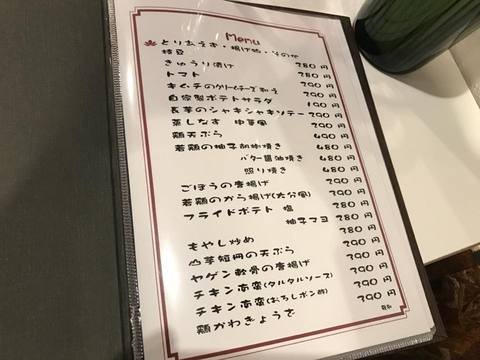 Menu
とりあえず・揚げ物・その他
枝豆
きゅうり漬け 280円
トマト 280円
キムチのクリームチーズ和え 390円
自家製ポテトサラダ 290円
長芋のシャキシャキソテー 190円
蒸しなす 中華風 290円
鶏天ぷら 290円
若鶏の柚子胡椒焼き 490円
バター醤油焼き 480円
照り焼き 480円
ごぼうの唐揚げ 480円
若鶏のから揚げ(大分風) 290円
フライドポテト 塩 390円
柚子マヨ 280円
もやし炒め 380円
山芋短冊の天ぷら 290円
ヤゲン軟骨の唐揚げ 390円
チキン南蛮(タルタルソース) 390円
チキン南蛮(おろしポン酢) 390円
鶏かわぎょうざ 390円
税別